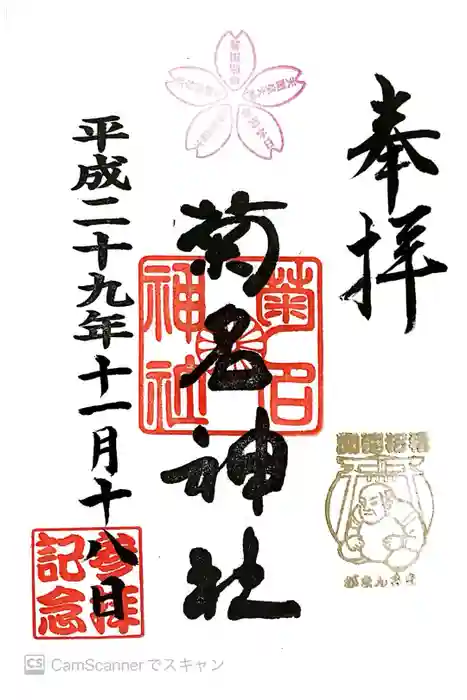 奉拝
菊名神社
平成二十九年十一月十八日
菊名
神社
参拝
記念
がまんさま
CS CamScannerでスキャン